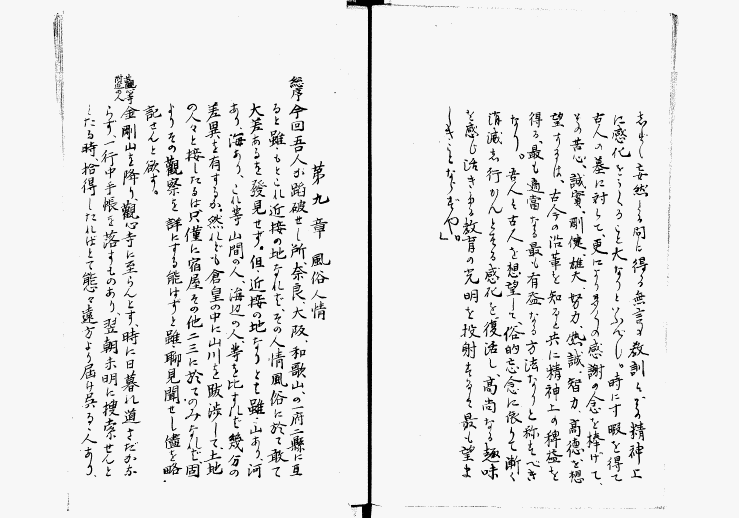 に感化をうくること大なりといふべし。時に寸暇を得て
古人の墓に対して、更により多くの感謝の念を捧げて、
その苦心、誠實、剛健、雄大、努力、熱誠、智力、高徳を想
望するは、古今の沿革を知ると共に精神上の稗益を
得る最も適當なる最も有益なる方法なりと称すべき
なり。吾人も古人を想望して俗的忘念に依りて漸く
消滅し行かんとする感化を復活し、高尚なる趣味
を感じ活きたる教育の光明を投射するを最も望ま
しきことならずや。」
第九章 風俗人情
總序 今回吾人が蹈破せし所奈良、大阪、和歌山の一府二縣に亙
ると雖もとこれ近接の地なれば、その人情風俗に於て敢て
大差あるを發見せず。但、近接の地なりとも雖、山あり、河
あり、海あり、これ等山間の人、海辺の人等を比すれば幾分の
差異を有するが、然れども倉皇の中に山川を跋渉して、土地
の人々と接したるは只僅に宿屋その他二三に於てのみなれば固
よりその觀察を詳にする能はずと雖、聊見聞せし儘を略
記さんと欲す。
觀心寺附近の人 金剛山を降り、觀心寺に至らんとす、時に日暮れ道さだかな
らず、一行中手帳を落すものあり、翌朝未明に捜索せんと
したる時、拾得したればとて態々遠方より届け呉るゝ人あり、